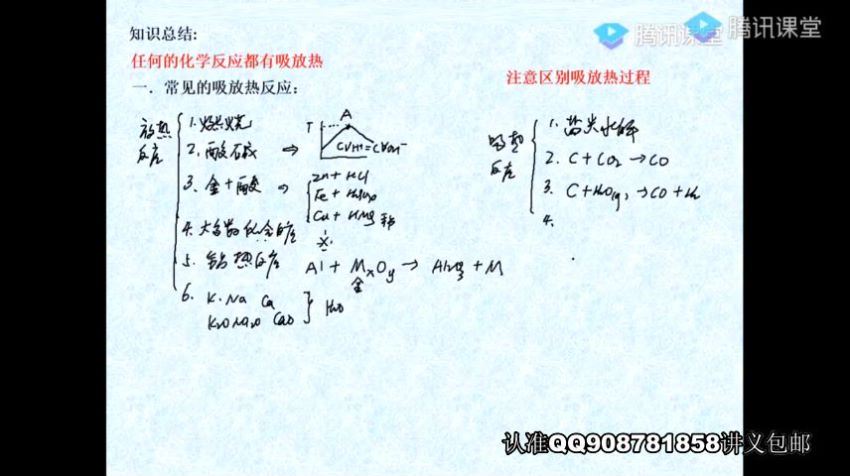 知识总结:
腾讯课堂
腾讯课堂
任何的化学反应都有吸放热
一. 常见的吸放热反应:
注意区别吸放热过程
放热
反应
1. 燃烧
2. 酸碱 ⇒
T
A
3. 金+酸 ⇒
Zn + HCl
Fe +
Cu +
4. 大多数化合反应
5. 铝热反应
Al + MxOy → Al2O3 + M
金
6. K. Na Ca
K2O Na2O CaO
H2O
吸热
反应
1. 盐类水解
2. C + CO2 → CO
3. C + H2O(g) → CO + H2
4.
认准QQ908781858讲义包邮